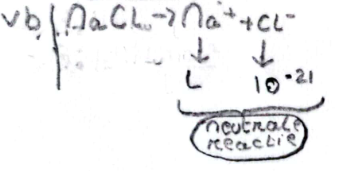 vb NaCl → Na⁺ + Cl⁻
↓ ↓
L 10⁻²¹
neutrale
reactie